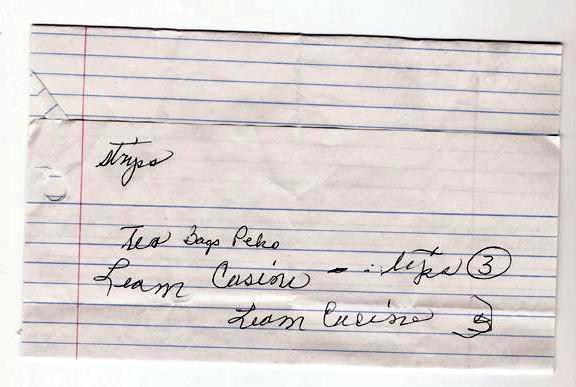 strips
Tea Bags Peko
Leam Cusine - : tips ③
Leam Cucine 5